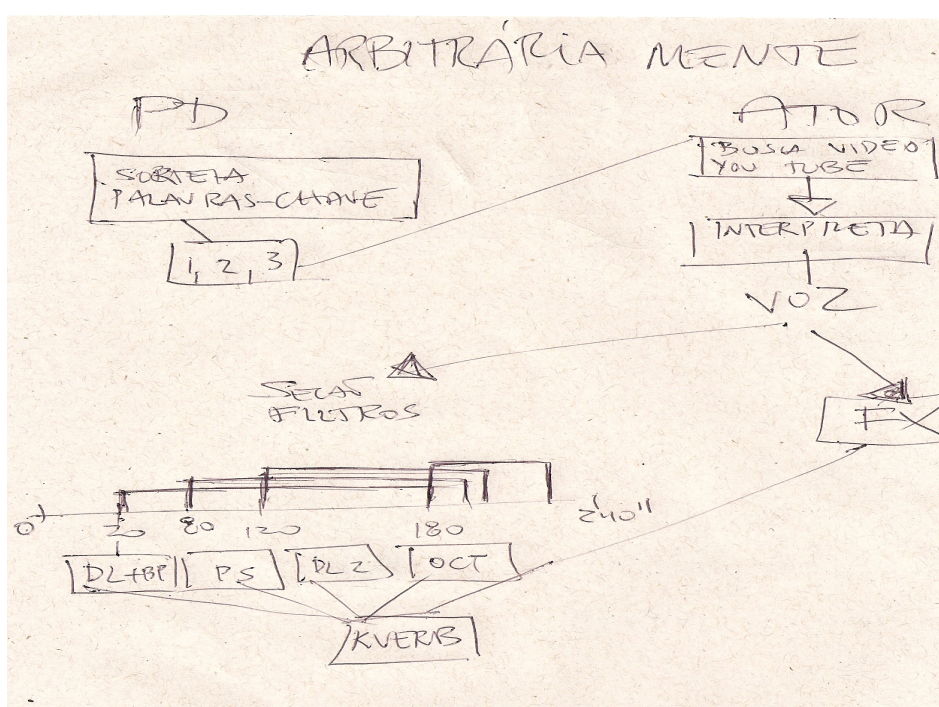 ARBITRÁRIA MENTE
PD
ATOR
SORTEIA
PALAVRAS-CHAVE
1, 2, 3
BUSCA VIDEO
YOU TUBE
INTERPRETA
VOZ
FILTROS
FX
0'
20
80
120
180
2'40"
DL+BP
PS
DL2
OCT